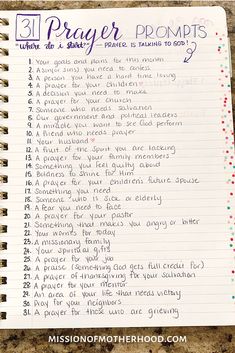 31 Prayer PROMPTS
"where do i start" — PRAYER IS TALKING TO GOD!
1. Your goals and plans for this month
2. A sin(or sins) you need to confess
3. A person you have a hard time loving
4. A prayer for your children
5. A decision you need to make
6. A prayer for your church
7. Someone who needs salvation
8. Our government and political leaders
9. A miracle you want to see God perform
10. A friend who needs prayer
11. Your husband
12. A fruit of the spirit you are lacking
13. A prayer for your family members
14. Something you feel guilty about
15. Boldness to Shine for Him
16. A prayer for your childrens future spouse
17. Something you need
18. Someone who is sick or elderly
19. A fear you need to face
20. A prayer for your pastor
21. Something that makes you angry or bitter
22. Your worries for today
23. A missionary family
24. Your spiritual gifts
25. A prayer for an enemy
26. A praise (something God gets full credit for)
27. A prayer of thanksgiving for your salvation
28. A prayer for your mentor
29. An area of your life that needs victory
30. Pray for your neighbors
31. A prayer for those who are grieving
MISSIONOFMOTHERHOOD.COM